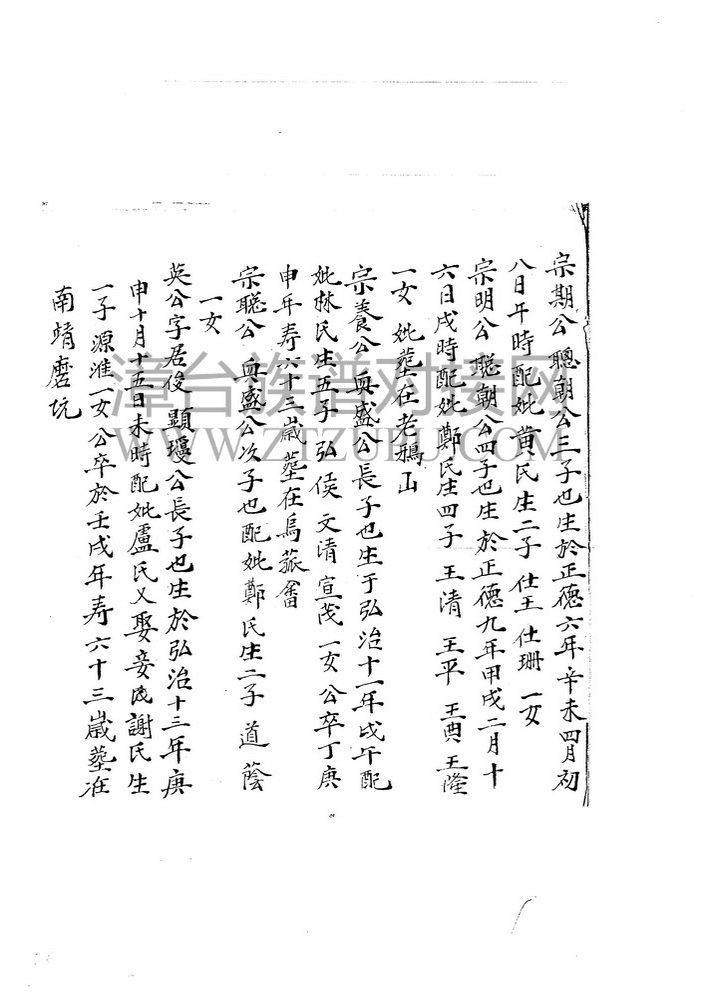 宗期公 聰朝公三子也生於正德六年辛未四月初
八日午時配妣黄民生二子 仕王 仕珊 一女
宗明公 聰朝公四子也生於正德九年甲戌二月十
六日戌時配妣鄭氏生四子 王清 王平 王酉 王隆
一女 妣墓在老鴉山
宗養公 興盛公長子也生于弘治十一年戊午配
妣林氏生五子 弘 侯 文清 宣茂 一女 公卒丁庚
申年寿六十三歲墓在烏 畲
宗聰公 興盛公次子也配妣鄭氏生二子 道 蔭
一女
英公字居俊 顯 公長子也生於弘治十三年庚
申十月十五日未時配妣盧氏又娶妾 謝氏生
一子 源淮 一女公卒於壬戌年寿六十三歲墓在
南靖磨坑
漳台族谱对接网
WWW.ZTZUPU.COM